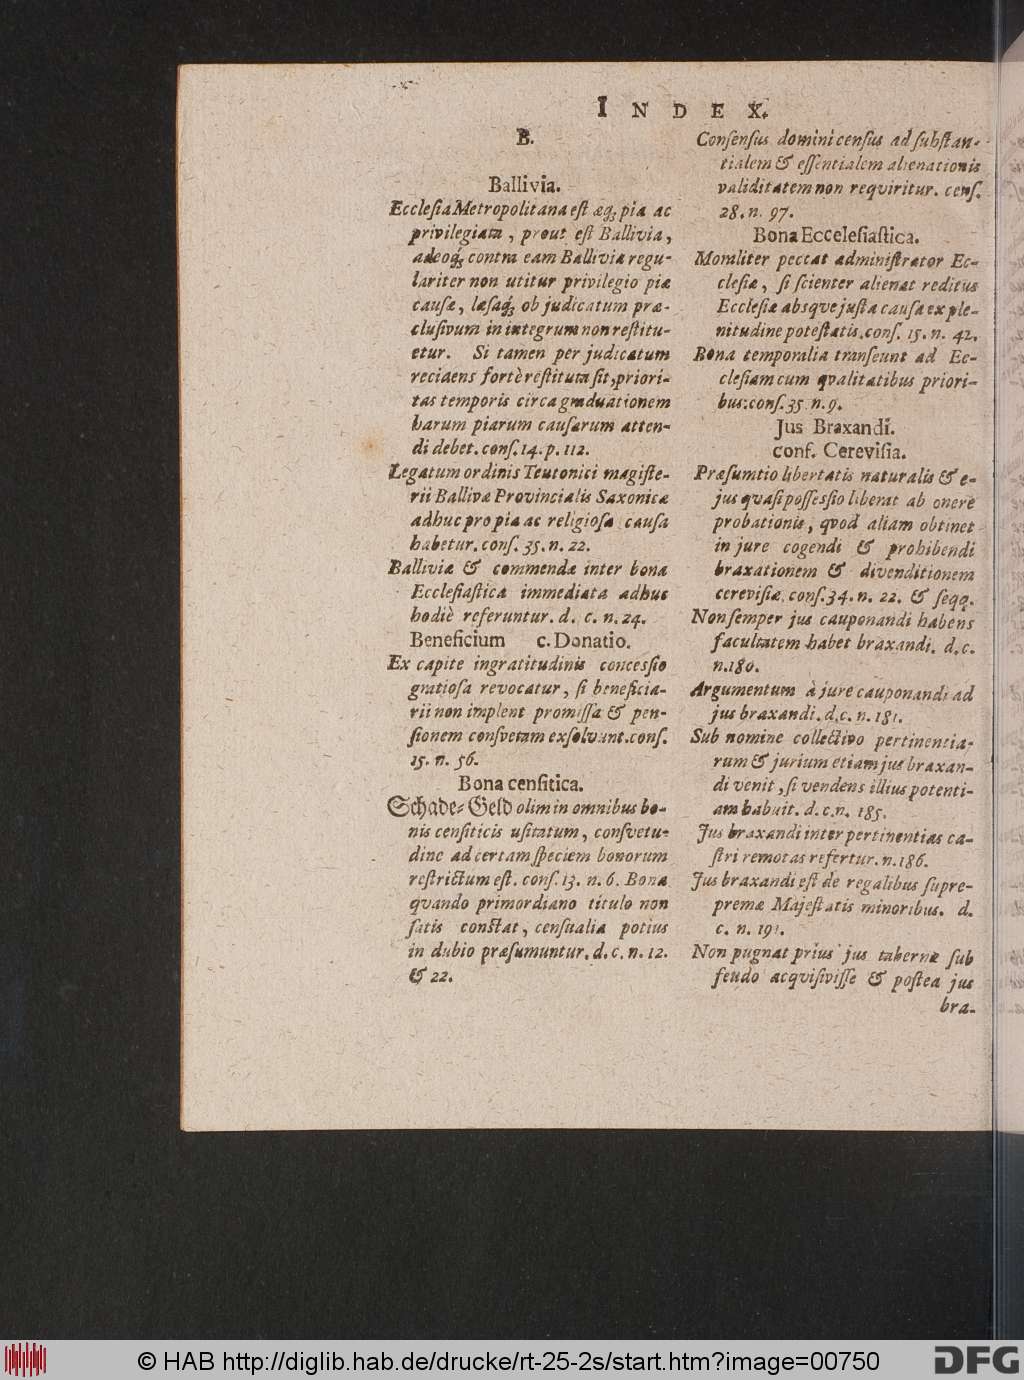 INDEX.
B.
Ballivia.
Ecclesia Metropolitana est æq; pia ac
privilegiata, prout est Ballivia,
adeoq́; contra eam Ballivia regu-
lariter non utitur privilegio piæ
causæ, læsaq́; ob judicatum præ-
clusivum in integrum non restitu-
etur. Si tamen per judicatum
reciaens fortè restituta sit, priori-
tas temporis circa graduationem
harum piarum causarum atten-
di debet. cons. 14. p. 112.
Legatum ordinis Teutonici magiste-
rii Ballivæ Provincialis Saxonicæ
adhuc pro pia ac religiosa causa
habetur. cons. 35. n. 22.
Balliviæ & commendæ inter bona
Ecclesiastica immediata adhuc
hodiè referuntur. d. c. n. 24.
Beneficium c. Donatio.
Ex capite ingratitudinis concessio
gratiosa revocatur, si beneficia-
rii non implent promissa & pen-
sionem consvetam exsolvunt. cons.
15. n. 56.
Bona censitica.
Schade-Geld olim in omnibus bo-
nis censiticis usitatum, consvetu-
dine ad certam speciem bonorum
restrictum est. cons. 13. n. 6. Bona
quando primordiano titulo non
satis constat, censualia potius
in dubio præsumuntur. d. c. n. 12.
& 22.
Consensus domini census ad substan-
tialem & essentialem alienationis
validitatem non requiritur. cens.
28. n. 97.
Bona Eccelesiastica.
Moraliter peccat administrator Ec-
clesiæ, si scienter alienat reditus
Ecclesiæ absque justa causa ex ple-
nitudine potestatis. cons. 15. n. 42.
Bona temporalia transeunt ad Ec-
clesiam cum qvalitatibus priori-
bus. cons. 35. n. 9.
Jus Braxandi.
conf. Cerevisia.
Præsumtio libertatis naturalis & e-
jus quasi possessio liberat ab onere
probationis, qvod aliam obtinet
in jure cogendi & prohibendi
braxationem & divenditionem
cerevisiæ. cons. 34. n. 22. & seqq.
Non semper jus cauponandi habens
facultatem habet braxandi. d. c.
n. 180.
Argumentum à jure cauponandi ad
jus braxandi. d. c. n. 181.
Sub nomine collectivo pertinentia-
rum & jurium etiam jus braxan-
di venit, si vendens illius potenti-
am habuit. d. c. n. 185.
Jus braxandi inter pertinentias ca-
stri remotas refertur. n. 186.
Jus braxandi est de regalibus supre-
premæ Majestatis minoribus. d.
c. n. 191.
Non pugnat prius jus tabernæ sub
feudo acqvisivisse & postea jus
bra-
© HAB http://diglib.hab.de/drucke/rt-25-2s/start.htm?image=00750
DFG